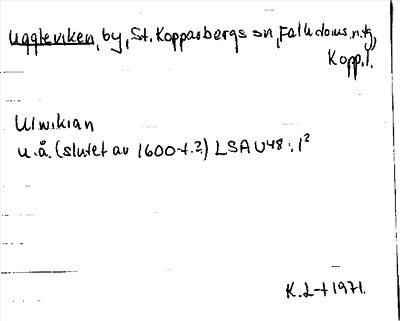 Uggleviken, by, St. Kopparbergs sn, Falu doms. n. tg,
Kopp. l.
Ulwikian
u.å. (slutet av 1600-t.?) LSA U48:1²
K. L-t 1971.